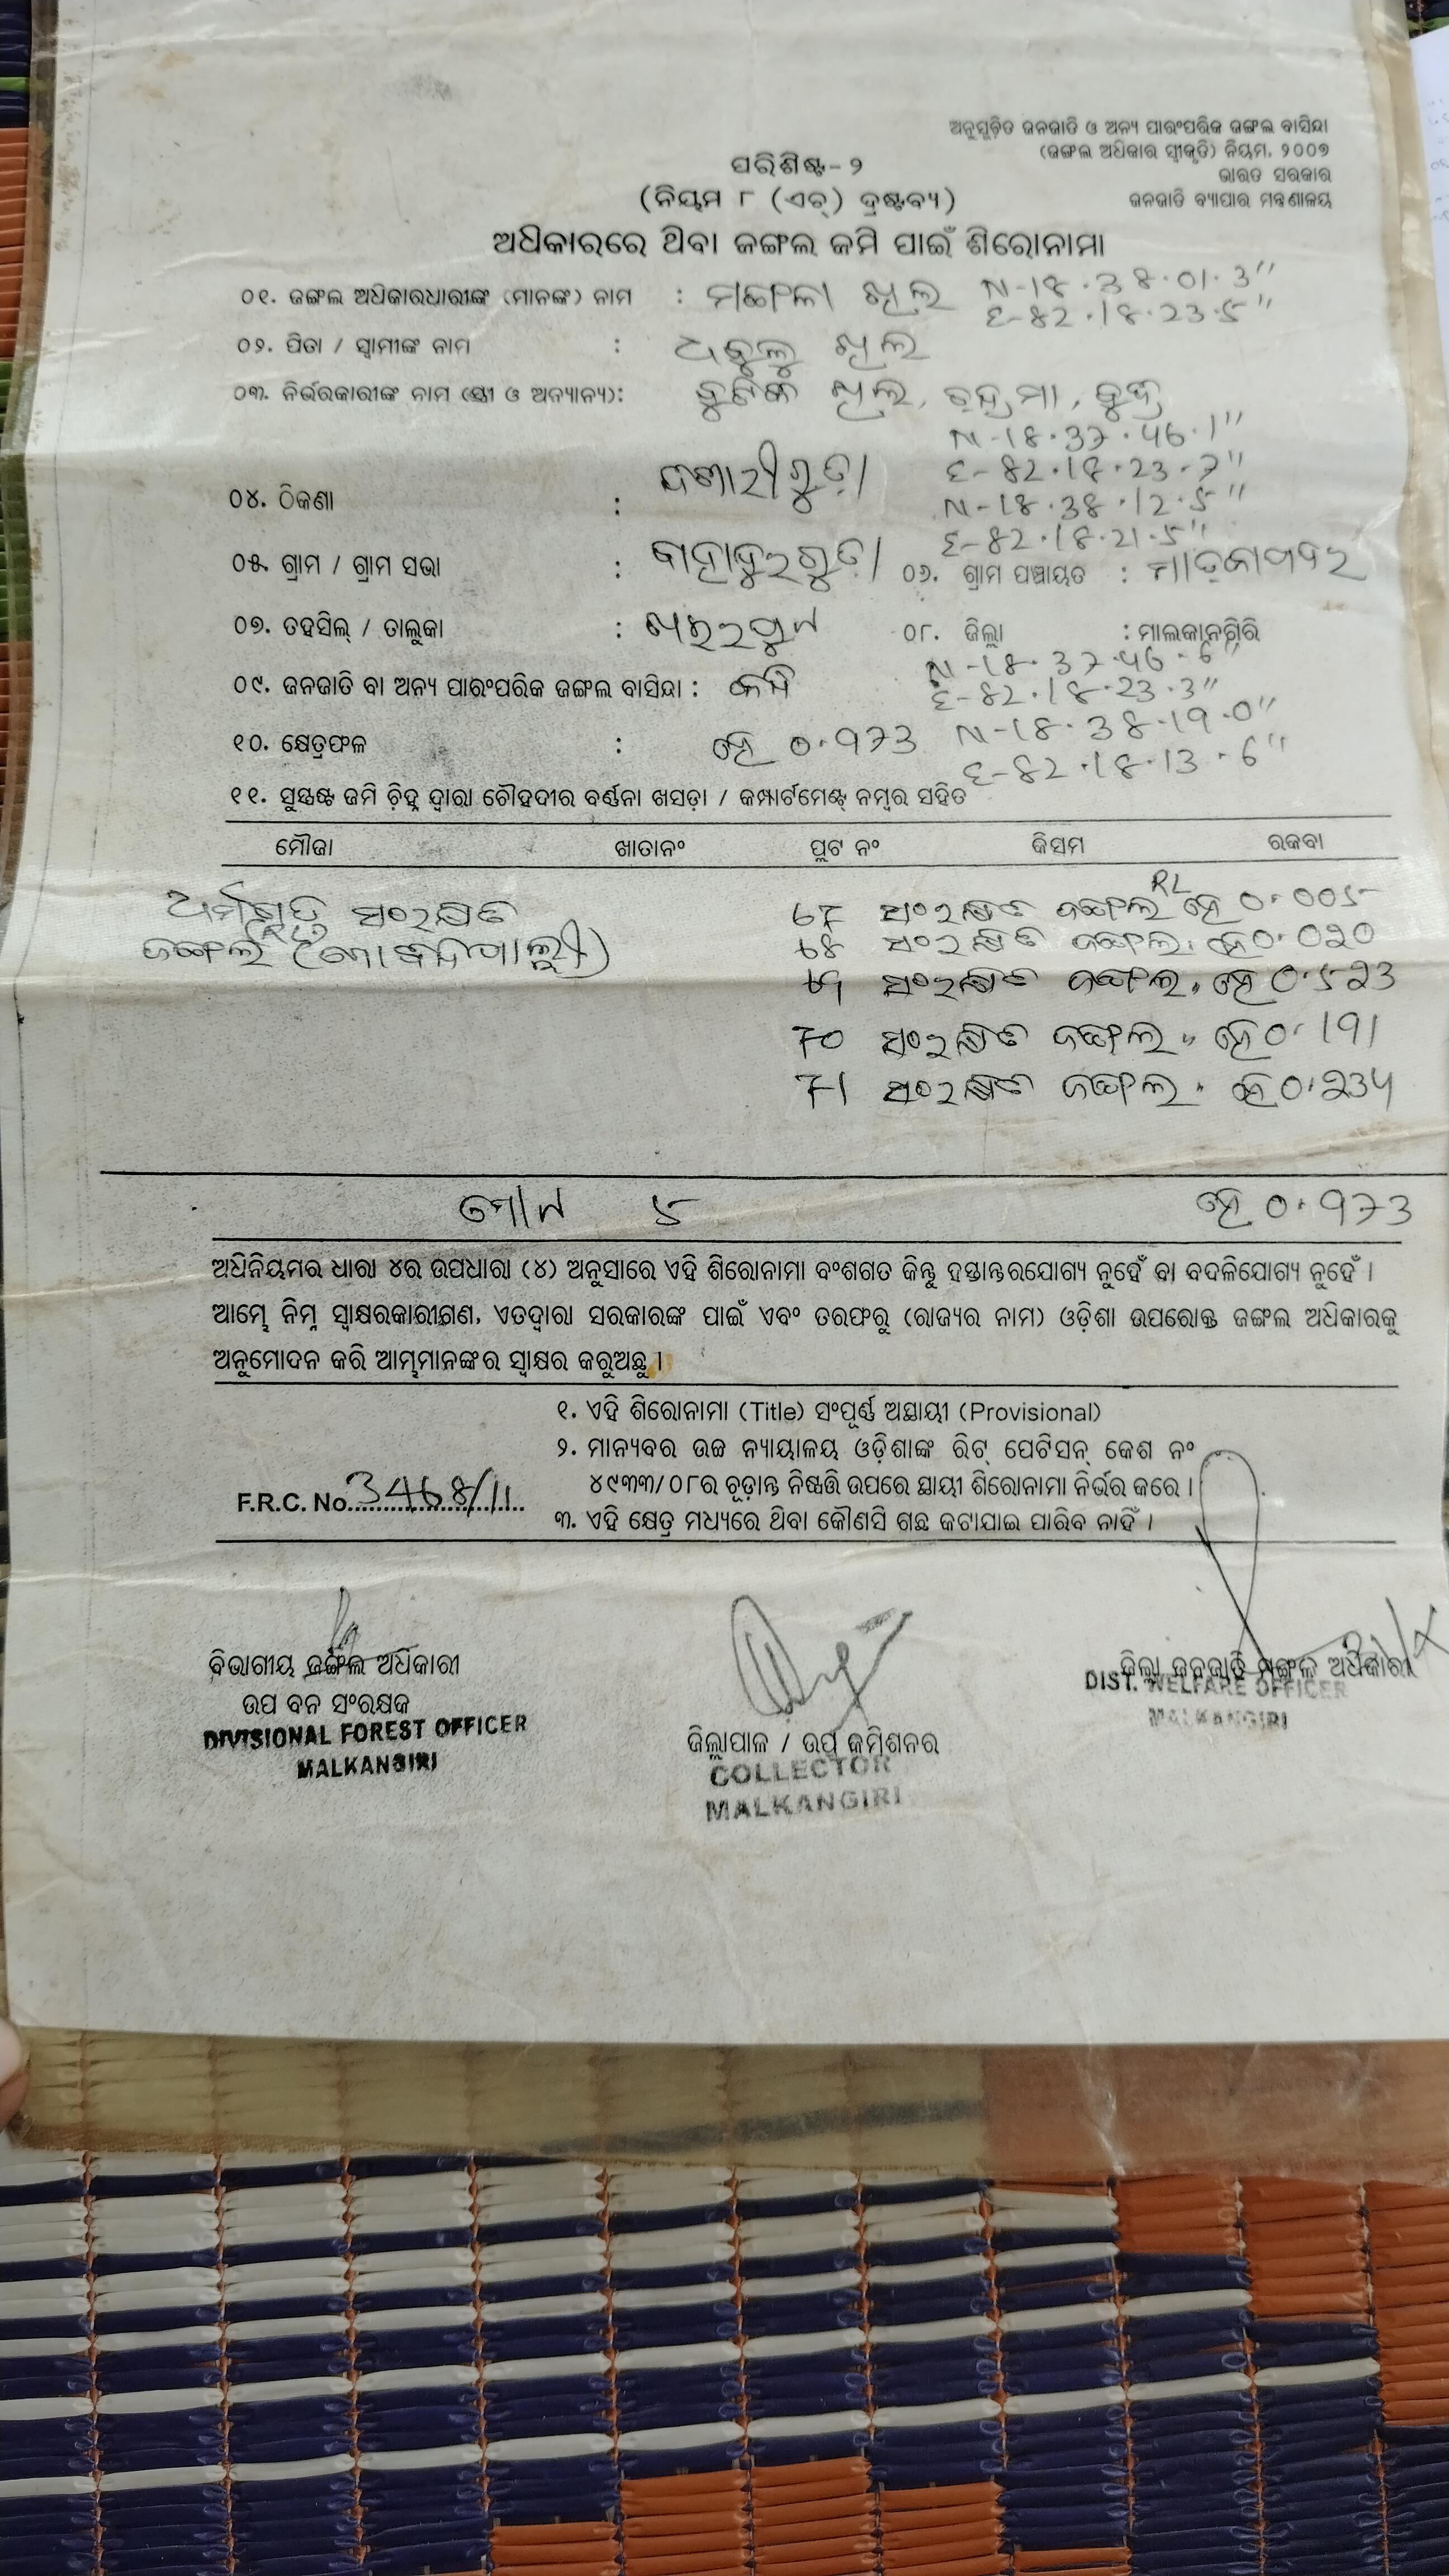 ଅନୁସୂଚିତ ଜନଜାତି ଓ ଅନ୍ୟ ପାରଂପରିକ ଜଙ୍ଗଲ ବାସିନ୍ଦା
(ଜଙ୍ଗଲ ଅଧିକାର ସ୍ୱୀକୃତି) ନିୟମ, ୨୦୦୭
ଭାରତ ସରକାର
ଜନଜାତି ବ୍ୟାପାର ମନ୍ତ୍ରଣାଳୟ
ପରିଶିଷ୍ଟ-୨
(ନିୟମ ୮ (ଏଚ୍) ଦ୍ରଷ୍ଟବ୍ୟ)
ଅଧିକାରରେ ଥିବା ଜଙ୍ଗଲ ଜମି ପାଇଁ ଶିରୋନାମା
୦୧. ଜଙ୍ଗଲ ଅଧିକାରଧାରୀଙ୍କ (ମାନଙ୍କ) ନାମ : ମଙ୍ଗଳା ଖିଲ N-18.38.01.3"
E-82.18.23.5"
୦୨. ପିତା / ସ୍ୱାମୀଙ୍କ ନାମ : ଖିଲ
୦୩. ନିର୍ଭରକାରୀଙ୍କ ନାମ (ସ୍ତ୍ରୀ ଓ ଅନ୍ୟାନ୍ୟ): ଖିଲ,
N-18.37.46.1"
E-82.18.23.7"
୦୪. ଠିକଣା :
N-18.38.12.5"
E-82.18.21.5"
୦୫. ଗ୍ରାମ / ଗ୍ରାମ ସଭା : ବାହାଦୁରଗୁଡ଼ା ୦୬. ଗ୍ରାମ ପଞ୍ଚାୟତ :
୦୭. ତହସିଲ୍ / ତାଲୁକା : ଖଇରପୁଟ ୦୮. ଜିଲ୍ଲା : ମାଲକାନଗିରି
N-18.37.46.6"
୦୯. ଜନଜାତି ବା ଅନ୍ୟ ପାରଂପରିକ ଜଙ୍ଗଲ ବାସିନ୍ଦା : E-82.18.23.3"
୧୦. କ୍ଷେତ୍ରଫଳ : ହେ ୦.973 N-18.38.19.0"
E-82.18.13.6"
୧୧. ସୁସ୍ପଷ୍ଟ ଜମି ଚିହ୍ନ ଦ୍ୱାରା ଚୌହଦୀର ବର୍ଣ୍ଣନା ଖସଡ଼ା / କମ୍ପାର୍ଟମେଣ୍ଟ୍ ନମ୍ବର ସହିତ
ମୌଜା ଖାତାନଂ ପ୍ଲଟ ନଂ କିସମ ରକବା
ସଂରକ୍ଷିତ 67 ସଂରକ୍ଷିତ ଜଙ୍ଗଲ RL ହେ 0.005
ଜଙ୍ଗଲ 68 ସଂରକ୍ଷିତ ଜଙ୍ଗଲ " ହେ 0.020
69 ସଂରକ୍ଷିତ ଜଙ୍ଗଲ " ହେ 0.523
70 ସଂରକ୍ଷିତ ଜଙ୍ଗଲ " ହେ 0.191
71 ସଂରକ୍ଷିତ ଜଙ୍ଗଲ " ହେ 0.234
ମୋଟ ୫ ହେ 0.973
ଅଧିନିୟମର ଧାରା ୪ର ଉପଧାରା (୪) ଅନୁସାରେ ଏହି ଶିରୋନାମା ବଂଶଗତ କିନ୍ତୁ ହସ୍ତାନ୍ତରଯୋଗ୍ୟ ନୁହେଁ ବା ବଦଳିଯୋଗ୍ୟ ନୁହେଁ ।
ଆମ୍ଭେ ନିମ୍ନ ସ୍ୱାକ୍ଷରକାରୀଗଣ, ଏତଦ୍ୱାରା ସରକାରଙ୍କ ପାଇଁ ଏବଂ ତରଫରୁ (ରାଜ୍ୟର ନାମ) ଓଡ଼ିଶା ଉପରୋକ୍ତ ଜଙ୍ଗଲ ଅଧିକାରକୁ
ଅନୁମୋଦନ କରି ଆମ୍ଭମାନଙ୍କର ସ୍ୱାକ୍ଷର କରୁଅଛୁ ।
୧. ଏହି ଶିରୋନାମା (Title) ସଂପୂର୍ଣ୍ଣ ଅସ୍ଥାୟୀ (Provisional)
୨. ମାନ୍ୟବର ଉଚ୍ଚ ନ୍ୟାୟାଳୟ ଓଡ଼ିଶାଙ୍କ ରିଟ୍ ପେଟିସନ୍ କେଶ ନଂ
୪୯୩୩/୦୮ର ଚୂଡ଼ାନ୍ତ ନିଷ୍ପତ୍ତି ଉପରେ ସ୍ଥାୟୀ ଶିରୋନାମା ନିର୍ଭର କରେ ।
F.R.C. No. 3468/11
୩. ଏହି କ୍ଷେତ୍ର ମଧ୍ୟରେ ଥିବା କୌଣସି ଗଛ କଟାଯାଇ ପାରିବ ନାହିଁ ।
ବିଭାଗୀୟ ଜଙ୍ଗଲ ଅଧିକାରୀ
ଉପ ବନ ସଂରକ୍ଷକ
DIVISIONAL FOREST OFFICER
MALKANGIRI
ଜିଲ୍ଲାପାଳ / ଉପ କମିଶନର
COLLECTOR
MALKANGIRI
ଜିଲ୍ଲା ଜନଜାତି ମଙ୍ଗଳ ଅଧିକାରୀ
DIST. WELFARE OFFICER
MALKANGIRI